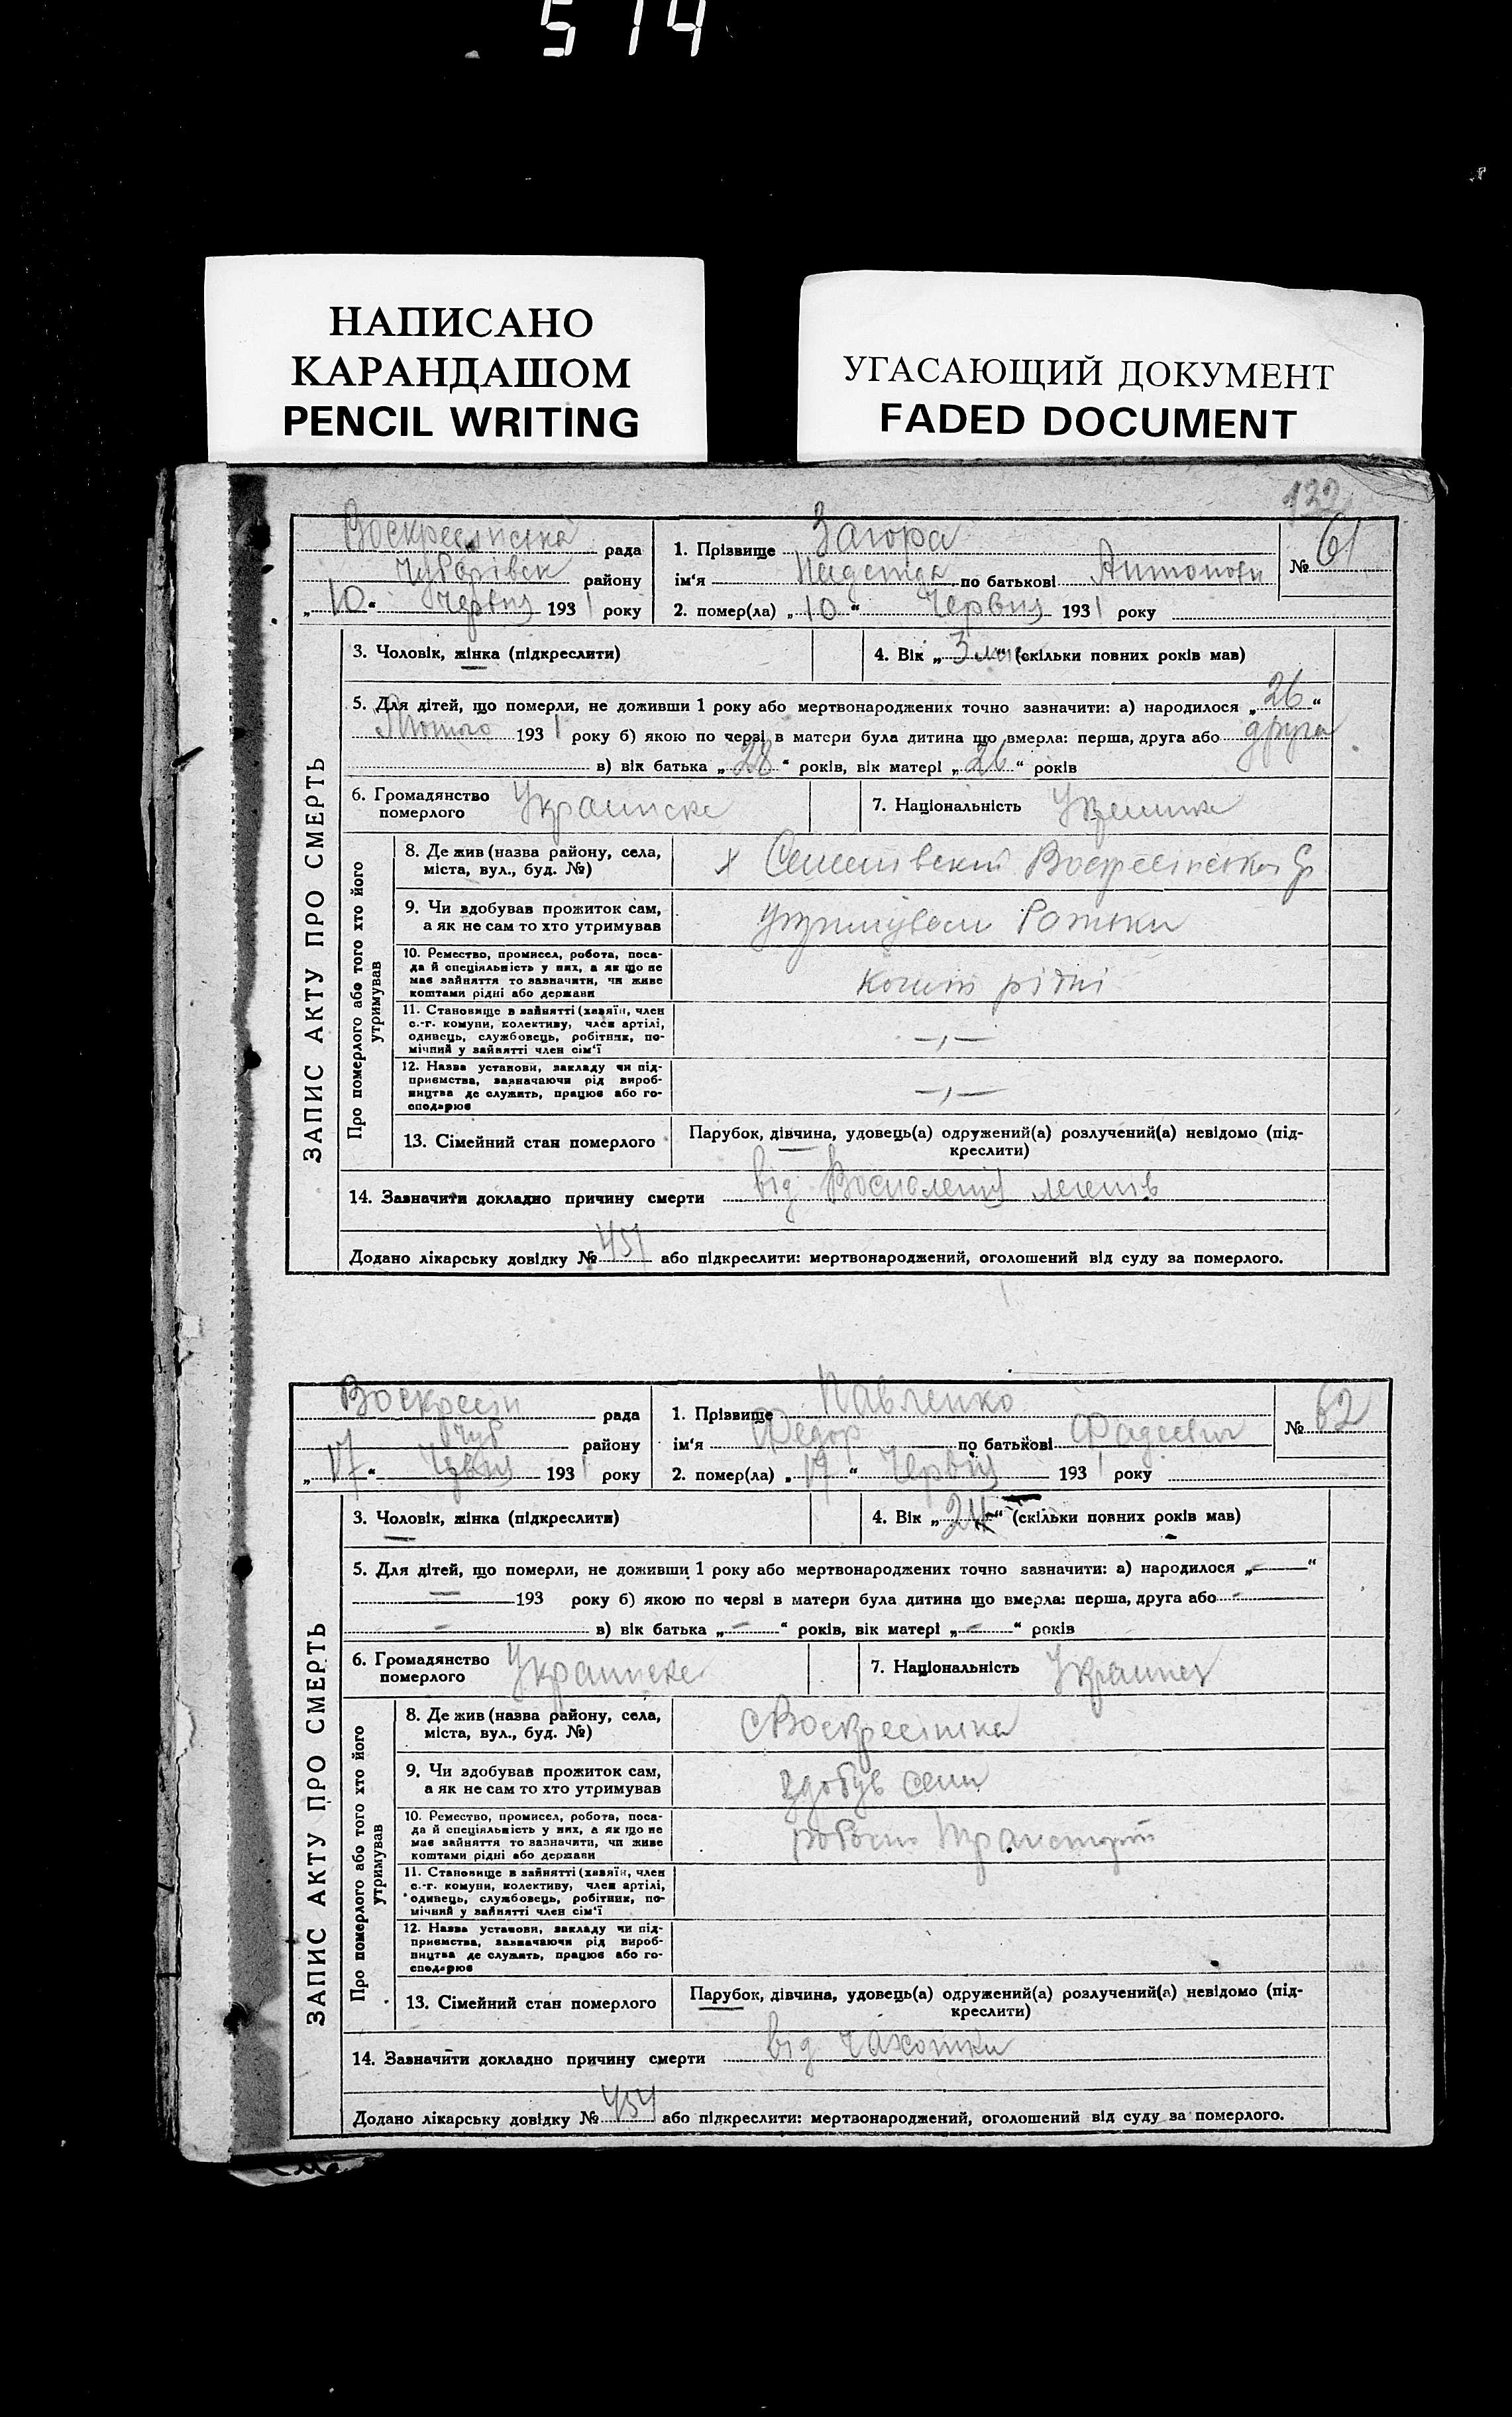 514
НАПИСАНО
КАРАНДАШОМ
PENCIL WRITING
УГАСАЮЩИЙ ДОКУМЕНТ
FADED DOCUMENT
122
Воскресенська рада
Чубарівск району
„10“ Червня 1931 року
1. Прізвище Загора
ім'я Надежда по батькові Антонови
2. помер(ла) „10“ Червня 1931 року
№ 61
ЗАПИС АКТУ ПРО СМЕРТЬ
3. Чоловік, жінка (підкреслити)
4. Вік „3 міс“ (скільки повних років мав)
5. Для дітей, що померли, не доживши 1 року або мертвонароджених точно зазначити: а) народилося „26“
Лютого 1931 року б) якою по черзі в матери була дитина що вмерла: перша, друга або друга
в) вік батька „28“ років, вік матері „26“ років
6. Громадянство
померлого Украинске
7. Національність
Про померлого або того хто його
утримував
8. Де жив (назва району, села,
міста, вул., буд. №)
9. Чи здобував прожиток сам,
а як не сам то хто утримував
батьки
10. Ремество, промисел, робота, поса-
да й спеціяльність у них, а як що не
має зайняття то зазначити, чи живе
коштами рідні або держави
кошти рідні
11. Становище в зайнятті (хазяїн, член
с.-г. комуни, колективу, член артілі,
одинець, службовець, робітник, по-
мічний у зайнятті член сім'ї
—,—
12. Назва установи, закладу чи під-
приємства, зазначаючи рід вироб-
ництва де служить, працює або го-
сподарює
—,—
13. Сімейний стан померлого
Парубок, дівчина, удовець(а) одружений(а) розлучений(а) невідомо (під-
креслити)
14. Зазначити докладно причину смерти від Воспалення легенів
Додано лікарську довідку № 451 або підкреслити: мертвонароджений, оголошений від суду за померлого.
Воскресен рада
Чуб району
„17“ Червня 1931 року
1. Прізвище Павленко
ім'я Федор по батькові Фадеевич
2. помер(ла) „17“ Червня 1931 року
№ 62
ЗАПИС АКТУ ПРО СМЕРТЬ
3. Чоловік, жінка (підкреслити)
4. Вік „24“ (скільки повних років мав)
5. Для дітей, що померли, не доживши 1 року або мертвонароджених точно зазначити: а) народилося „—“
— 193 року б) якою по черзі в матери була дитина що вмерла: перша, друга або —
— в) вік батька „—“ років, вік матері „—“ років
6. Громадянство
померлого Украинске
7. Національність Украинец
Про померлого або того хто його
утримував
8. Де жив (назва району, села,
міста, вул., буд. №)
с Воскресенка
9. Чи здобував прожиток сам,
а як не сам то хто утримував
здобув сам
10. Ремество, промисел, робота, поса-
да й спеціяльність у них, а як що не
має зайняття то зазначити, чи живе
коштами рідні або держави
11. Становище в зайнятті (хазяїн, член
с.-г. комуни, колективу, член артілі,
одинець, службовець, робітник, по-
мічний у зайнятті член сім'ї
12. Назва установи, закладу чи під-
приємства, зазначаючи рід вироб-
ництва де служить, працює або го-
сподарює
13. Сімейний стан померлого
Парубок, дівчина, удовець(а) одружений(а) розлучений(а) невідомо (під-
креслити)
14. Зазначити докладно причину смерти від чахотки
Додано лікарську довідку № 454 або підкреслити: мертвонароджений, оголошений від суду за померлого.